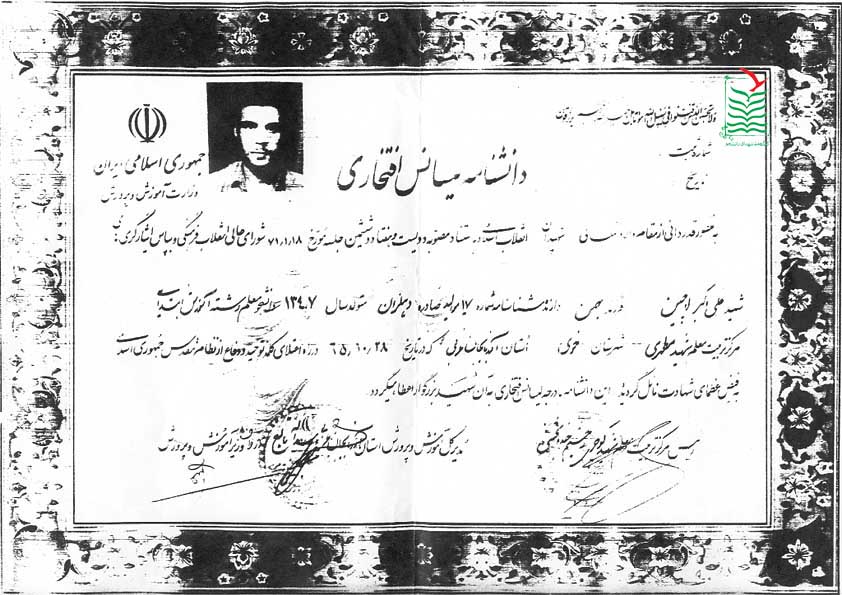 شماره ثبت
تاریخ
جمهوری اسلامی ایران
وزارت آموزش و پرورش
دانشنامه لیسانس افتخاری
به منظور قدردانی از مقام شهیدان انقلاب اسلامی و به استناد مصوبه دویست و هفتاد و ششمین جلسه مورخ ۷۱/۱/۱۸ شورای عالی انقلاب فرهنگی و بپاس ایثارگری
شهید علی اکبر فرزند بهمن دارنده شناسنامه شماره ۱۷ صادره دهلران متولد سال ۱۳۴۷ دانشجو معلم رشته آموزش ابتدایی
مرکز تربیت معلم شهید مطهری شهرستان خوی استان آذربایجان غربی که در تاریخ ۶۵/۱۰/۲۸ در راه اعتلای کلمه توحید و دفاع از نظام مقدس جمهوری اسلامی
به فیض عظمای شهادت نائل گردید این دانشنامه درجه لیسانس افتخاری به آن شهید بزرگوار اعطا میگردد.
رئیس مرکز تربیت معلم
مدیر کل آموزش و پرورش استان
وزیر آموزش و پرورش